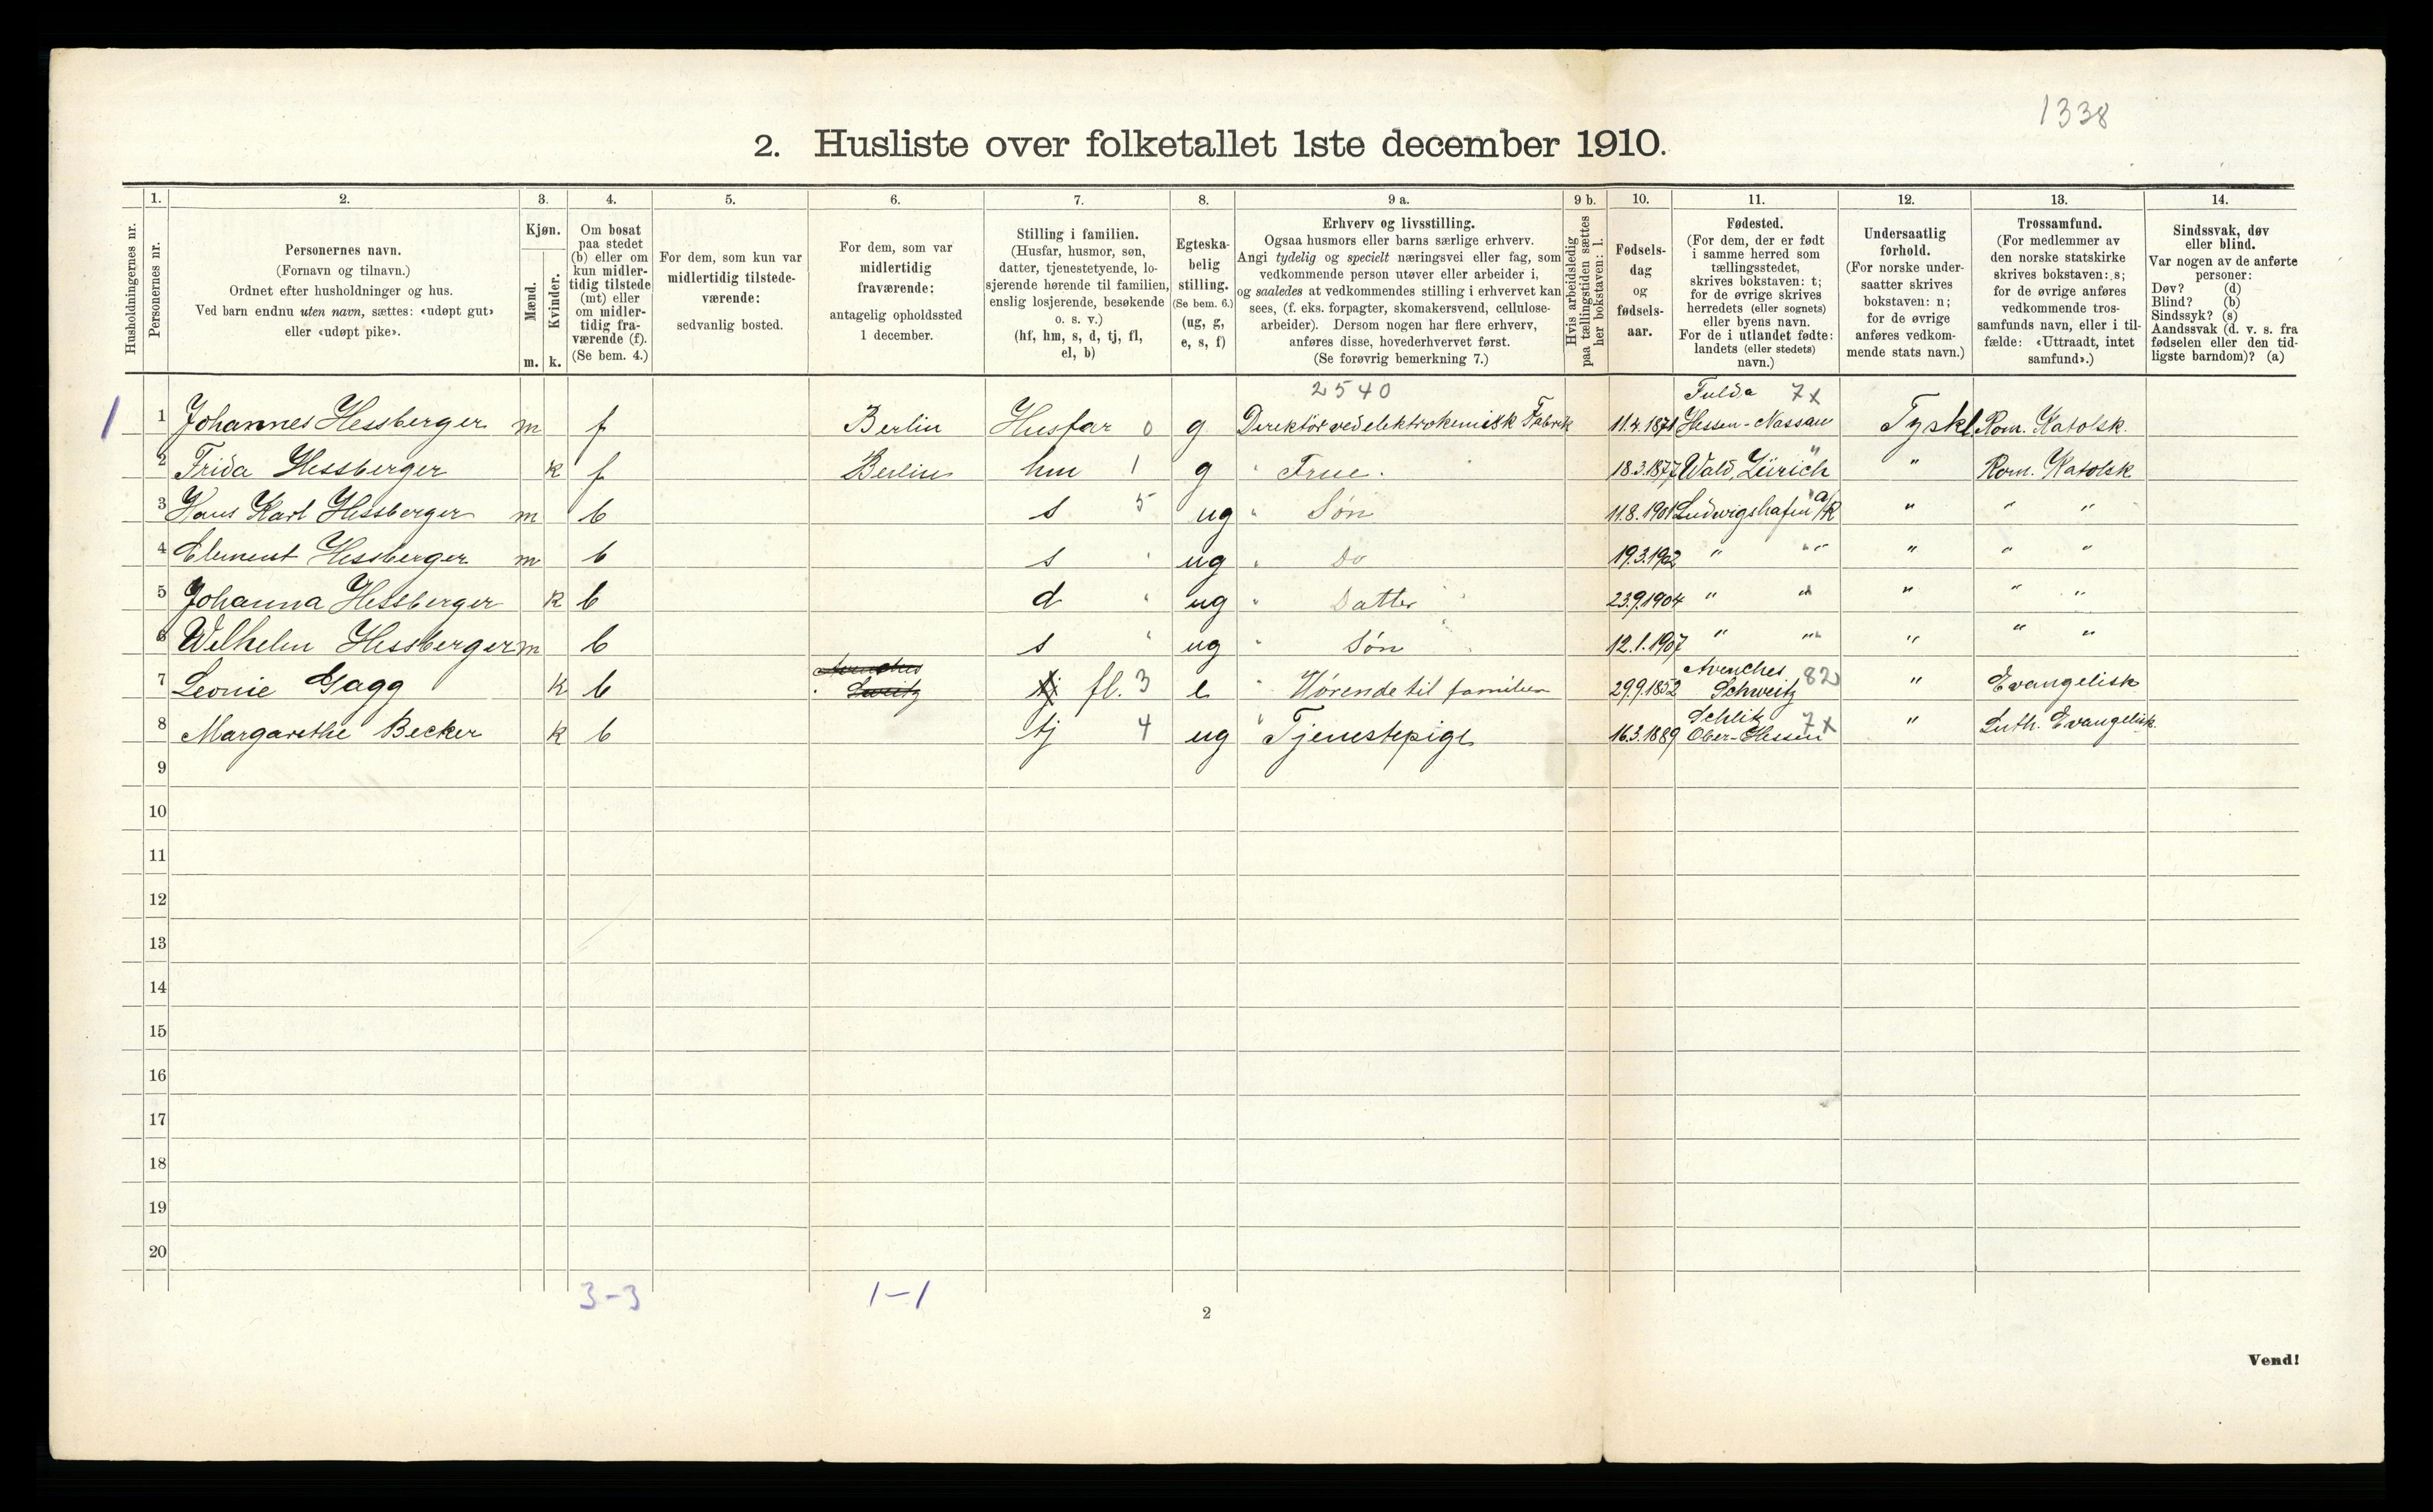 1338
2. Husliste over folketallet 1ste december 1910.
Husholdningernes nr.
1. Personernes nr.
2. Personernes navn. (Fornavn og tilnavn.) Ordnet efter husholdninger og hus. Ved barn endnu uten navn, sættes: «udøpt gut» eller «udøpt pike».
3. Kjøn. Mænd. m. Kvinder. k.
4. Om bosat paa stedet (b) eller om kun midlertidig tilstede (mt) eller om midlertidig fraværende (f). (Se bem. 4.)
5. For dem, som kun var midlertidig tilstedeværende: sedvanlig bosted.
6. For dem, som var midlertidig fraværende: antagelig opholdssted 1 december.
7. Stilling i familien. (Husfar, husmor, søn, datter, tjenestetyende, losjerende hørende til familien, enslig losjerende, besøkende o. s. v.) (hf, hm, s, d, tj, fl, el, b)
8. Egteskabelig stilling. (Se bem. 6.) (ug, g, e, s, f)
9 a. Erhverv og livsstilling. Ogsaa husmors eller barns særlige erhverv. Angi tydelig og specielt næringsvei eller fag, som vedkommende person utøver eller arbeider i, og saaledes at vedkommendes stilling i erhvervet kan sees, (f. eks. forpagter, skomakersvend, cellulosearbeider). Dersom nogen har flere erhverv, anføres disse, hovederhvervet først. (Se forøvrig bemerkning 7.)
9 b. Hvis arbeidsledig paa tællingstiden sættes her bokstaven: l.
10. Fødselsdag og fødselsaar.
11. Fødested. (For dem, der er født i samme herred som tællingsstedet, skrives bokstaven: t; for de øvrige skrives herredets (eller sognets) eller byens navn. For de i utlandet fødte: landets (eller stedets) navn.)
12. Undersaatlig forhold. (For norske undersaatter skrives bokstaven: n; for de øvrige anføres vedkommende stats navn.)
13. Trossamfund. (For medlemmer av den norske statskirke skrives bokstaven: s; for de øvrige anføres vedkommende trossamfunds navn, eller i tilfælde: «Uttraadt, intet samfund».)
14. Sindssvak, døv eller blind. Var nogen av de anførte personer: Døv? (d) Blind? (b) Sindssyk? (s) Aandssvak (d. v. s. fra fødselen eller den tidligste barndom)? (a)
2540 Fulda 7x
1 1 Johannes Hessberger m f Berlin Husfar 0 g Direktör ved elektrokemisk Fabrik 11.4.1871 Hessen-Nassau Tyskl. Rom. Katolsk.
2 Frida Hessberger k f Berlin hm 1 g " Frue. 18.3.1877 Wald, Zürich " Rom. Katolsk
3 Hans Karl Hessberger m b s 5 ug " Søn 11.8.1901 Ludwigshafen a/R " " "
4 Clement Hessberger m b s " ug " Do 19.3.1902 " " " " "
5 Johanna Hessberger k b d " ug " Datter 23.9.1904 " " " " "
6 Wilhelm Hessberger m b s " ug " Søn 12.1.1907 " " " " "
7 Leonie Gagg k b tj fl. 3 e " Hørende til familien 29.9.1852 Avenches Schweitz 82 " Evangelisk
8 Margarethe Becker k b tj 4 ug " Tjenestepige 16.3.1889 Schlitz Ober-Hessen 7x " Luth. Evangelisk.
9
10
11
12
13
14
15
16
17
18
19
20
3-3 1-1
2
Vend!